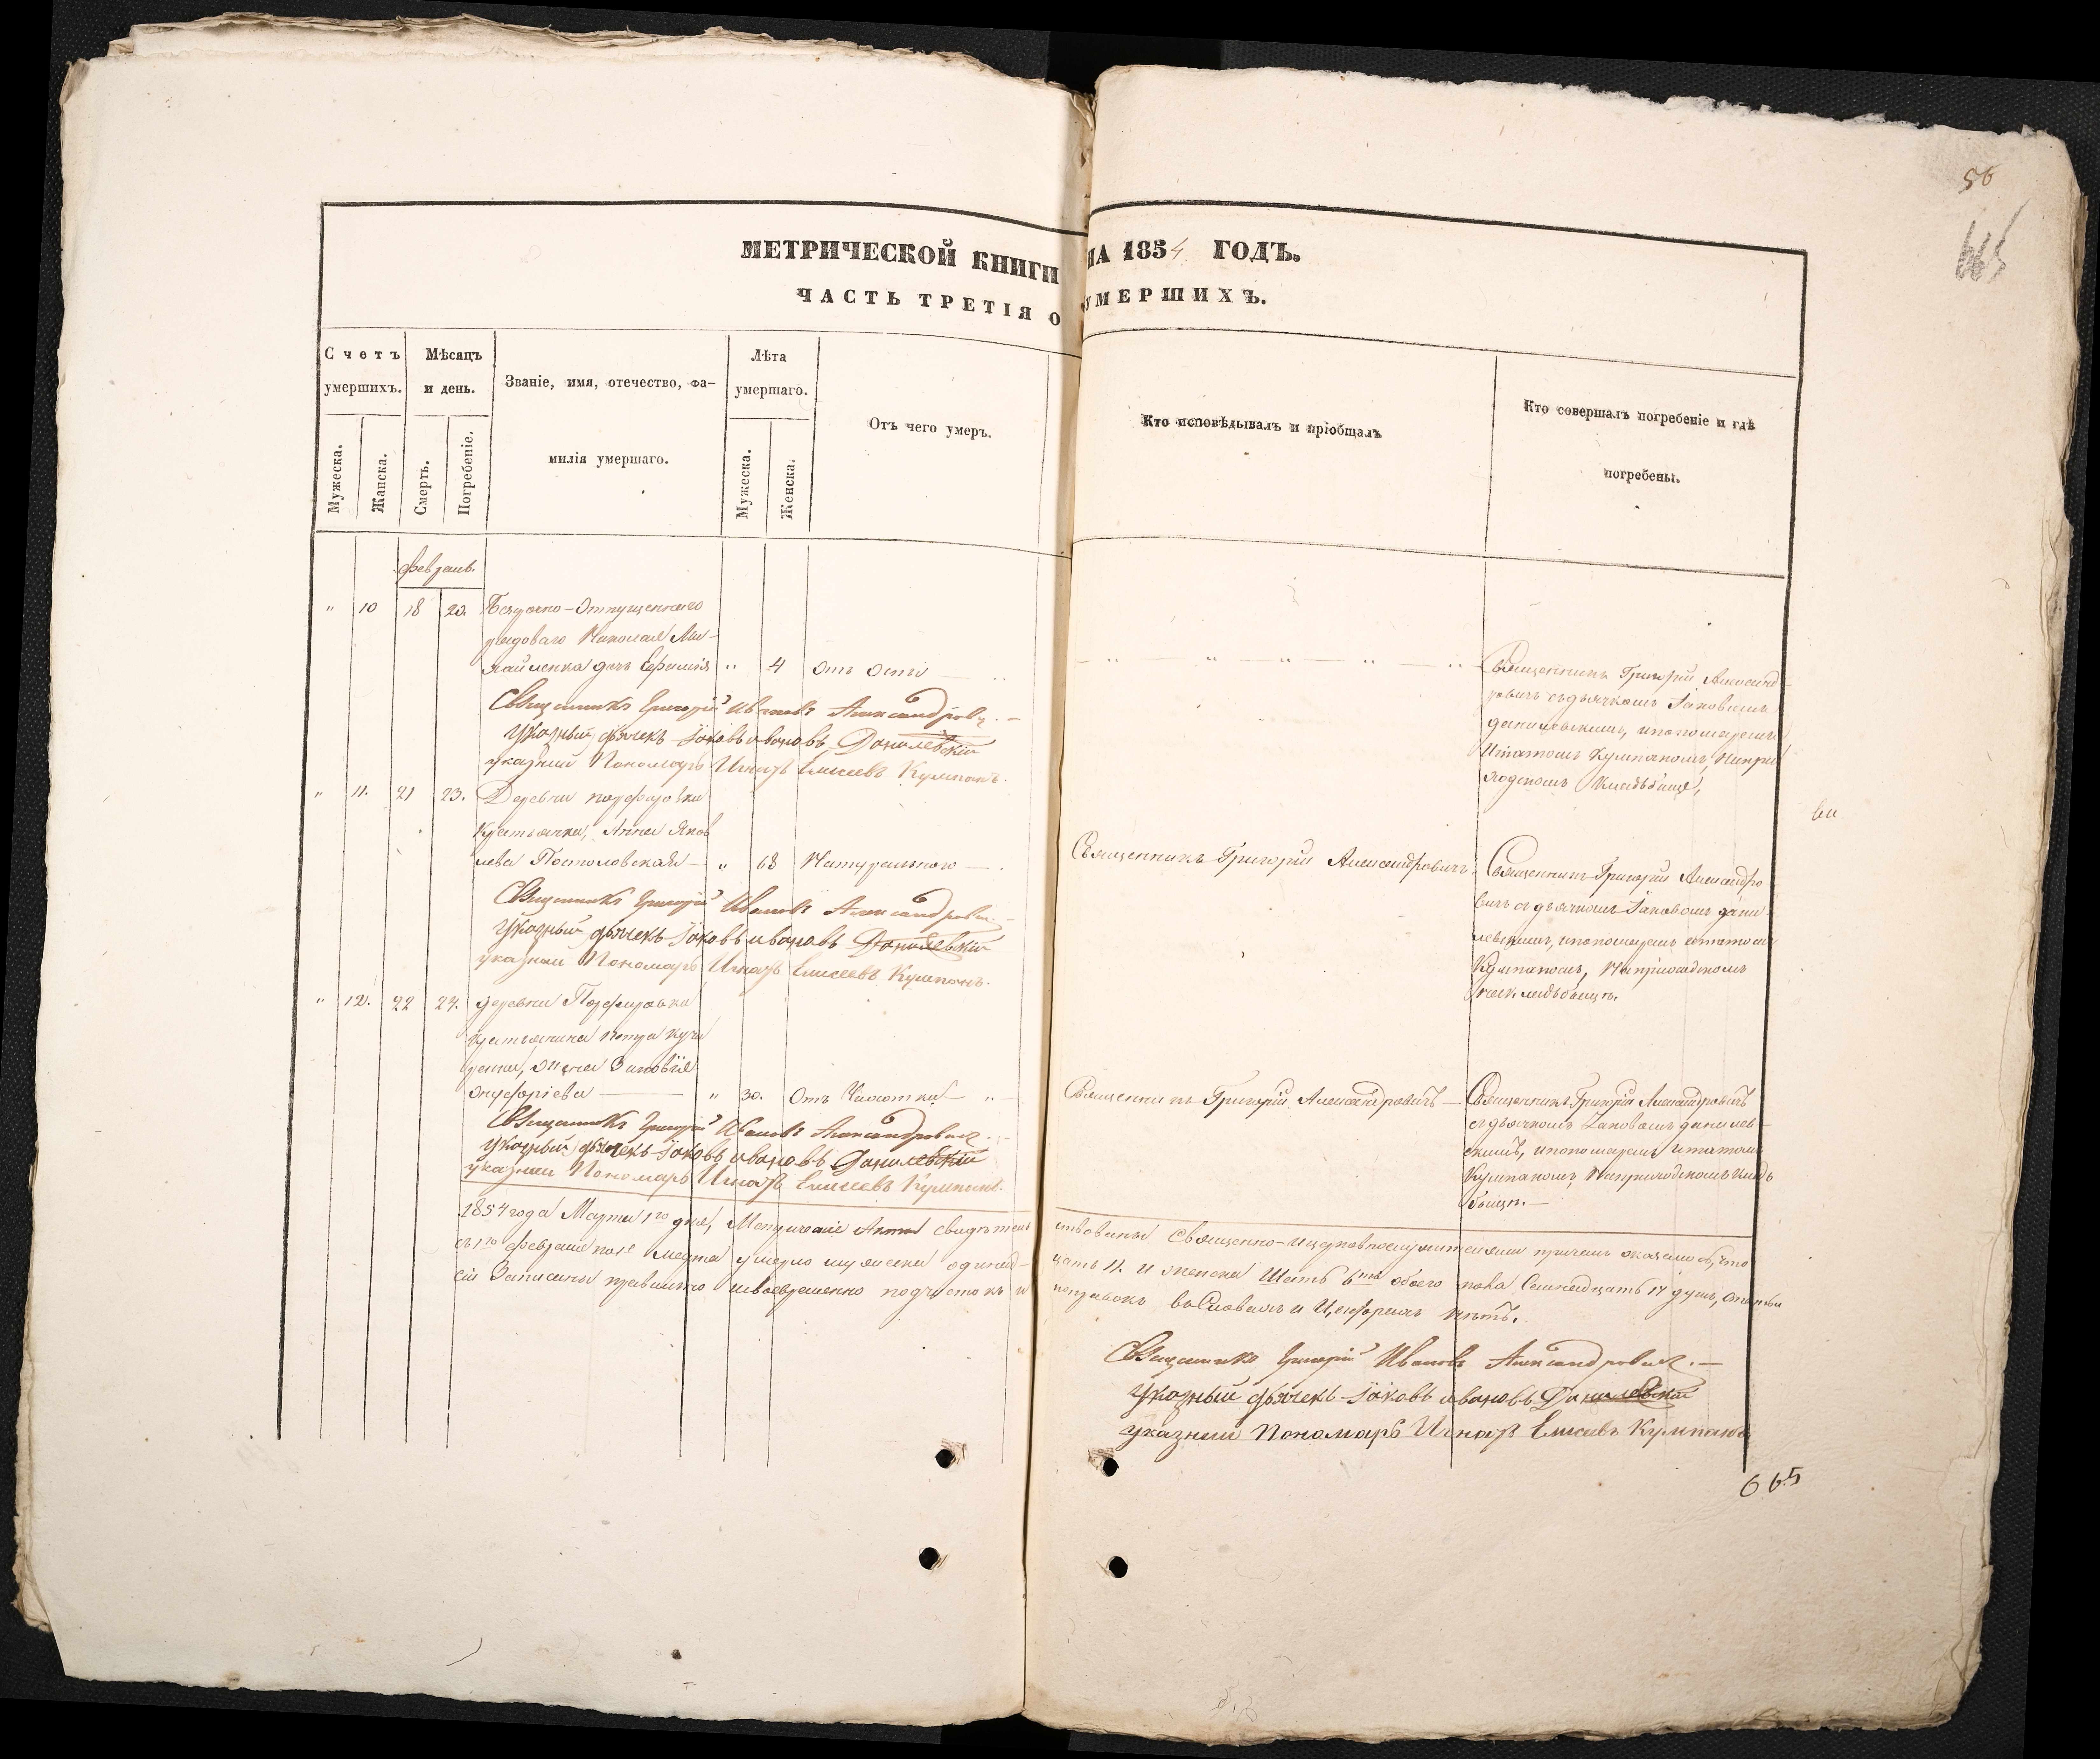 56
665
МЕТРИЧЕСКОЙ КНИГИ НА 1854 ГОДЪ.
ЧАСТЬ ТРЕТІЯ О УМЕРШИХЪ.
Счетъ умершихъ.
Мѣсяцъ и день.
Званіе, имя, отечество, фа-
милія умершаго.
Лѣта умершаго.
Отъ чего умеръ.
Кто исповѣдывалъ и пріобщалъ
Кто совершалъ погребеніе и гдѣ
погребены.
Мужеска.
Жанска.
Смерть.
Погребеніе.
Мужеска.
Женска.
февраль.
" 10 18 20. Безсрочно-Отпущеннаго
рядоваго Николая Ми-
хайленка дочь Ефимія " 4 Отъ Оспы
Священникъ Григорій Александ-
ровичъ съ дьячкомъ Іаковомъ
данилевскимъ, и пономаремъ
Игнатомъ Кумпаномъ, На при
ходскомъ Кладбище,
Священникъ Григорій Ивановъ Александрович.
Указный дьячекъ Іаковъ ивановъ Данилевскій
указный Пономарь Игнатъ Елисеевъ Кумпанъ.
" 11. 21 23. Деревни порфировки
Крестьянка, Анна Яков
лева Постоловская " 68 Натурально
Священникъ Григорій Александровичъ
Священникъ Григорій Александро
вичъ съ дьячкомъ Іаковомъ дани-
левскимъ, и пономаремъ
Кумпаномъ, На приходскомъ
Священникъ Григорій Ивановъ Александрович.
Указный дьячекъ Іаковъ ивановъ Данилевскій
указный Пономарь Игнатъ Елисеевъ Кумпанъ.
" 12. 22 24. деревни Порфировки
крестьянина Петра Куче
ренка, жена Зиновія
Онуфріева " 30. Отъ Чахотки "
Священникъ Григорій Александровичъ
Священникъ Григорій Александровичъ
съ дьячкомъ Іаковомъ данилев-
скимъ, и пономаремъ Игнатомъ
Кумпаномъ, На приходскомъ Клад
бищѣ.
Священникъ Григорій Ивановъ Александрович.
Указный дьячекъ Іаковъ ивановъ Данилевскій
указный Пономарь Игнатъ Елисеевъ Кумпанъ.
1854 года Марта 1го дня, Метрическіе Акты свидѣтель ствованы Священно-и церковнослужителями причемъ оказалось, что
съ 1го февраля по 1е марта умерло мужеска одинад- цать 11. и женска Шесть 6ть обоего пола Семнадцать 17 душъ, статьи
сіи Записаны правильно и своевременно подчистокъ и поправокъ въ Словахъ и Цифрахъ нѣтъ.
Священникъ Григорій Ивановъ Александрович.
Указный дьячекъ Іаковъ ивановъ Данилевскій
указный Пономарь Игнатъ Елисеевъ Кумпанъ
665